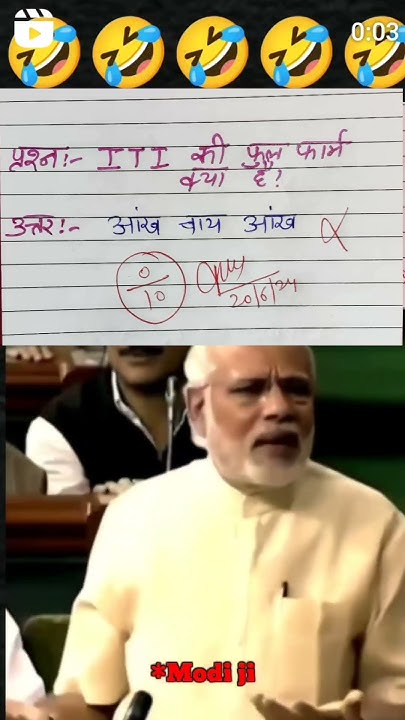 0:03
प्रश्न:- ITI की फुल फार्म
क्या है?
उत्तर:- आंख टाय आंख
0
10
20/6/24
*Modi ji